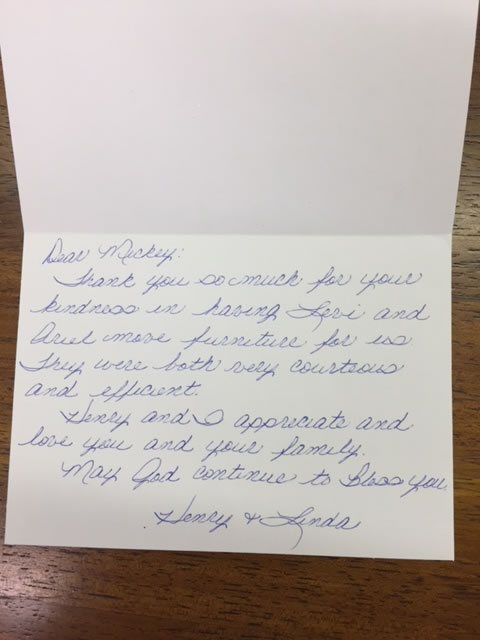 Dear Mickey:
Thank you so much for your
kindness in having Levi and
Ariel move furniture for us
They were both very courteous
and efficient.
Henry and I appreciate and
love you and your family.
May God continue to bless you
Henry & Linda